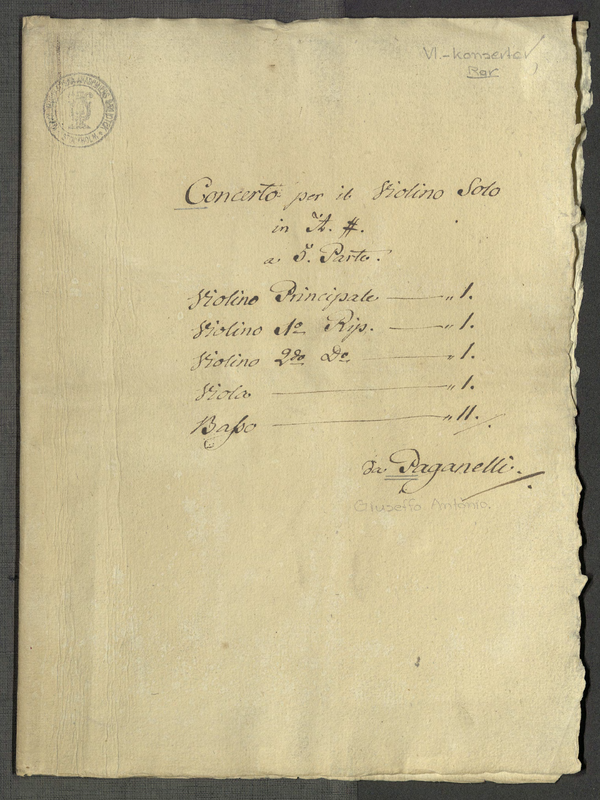 Vl.-konserter
Rar
Concerto per il Violino Solo
in A. #.
a. 5. Parte.
Violino Principale — „ 1.
Violino 1o Rip. — „ 1.
Violino 2do Do — „ 1.
Viola — „ 1.
Basso — „ 11.
da Paganelli.
Giuseffo Antonio.